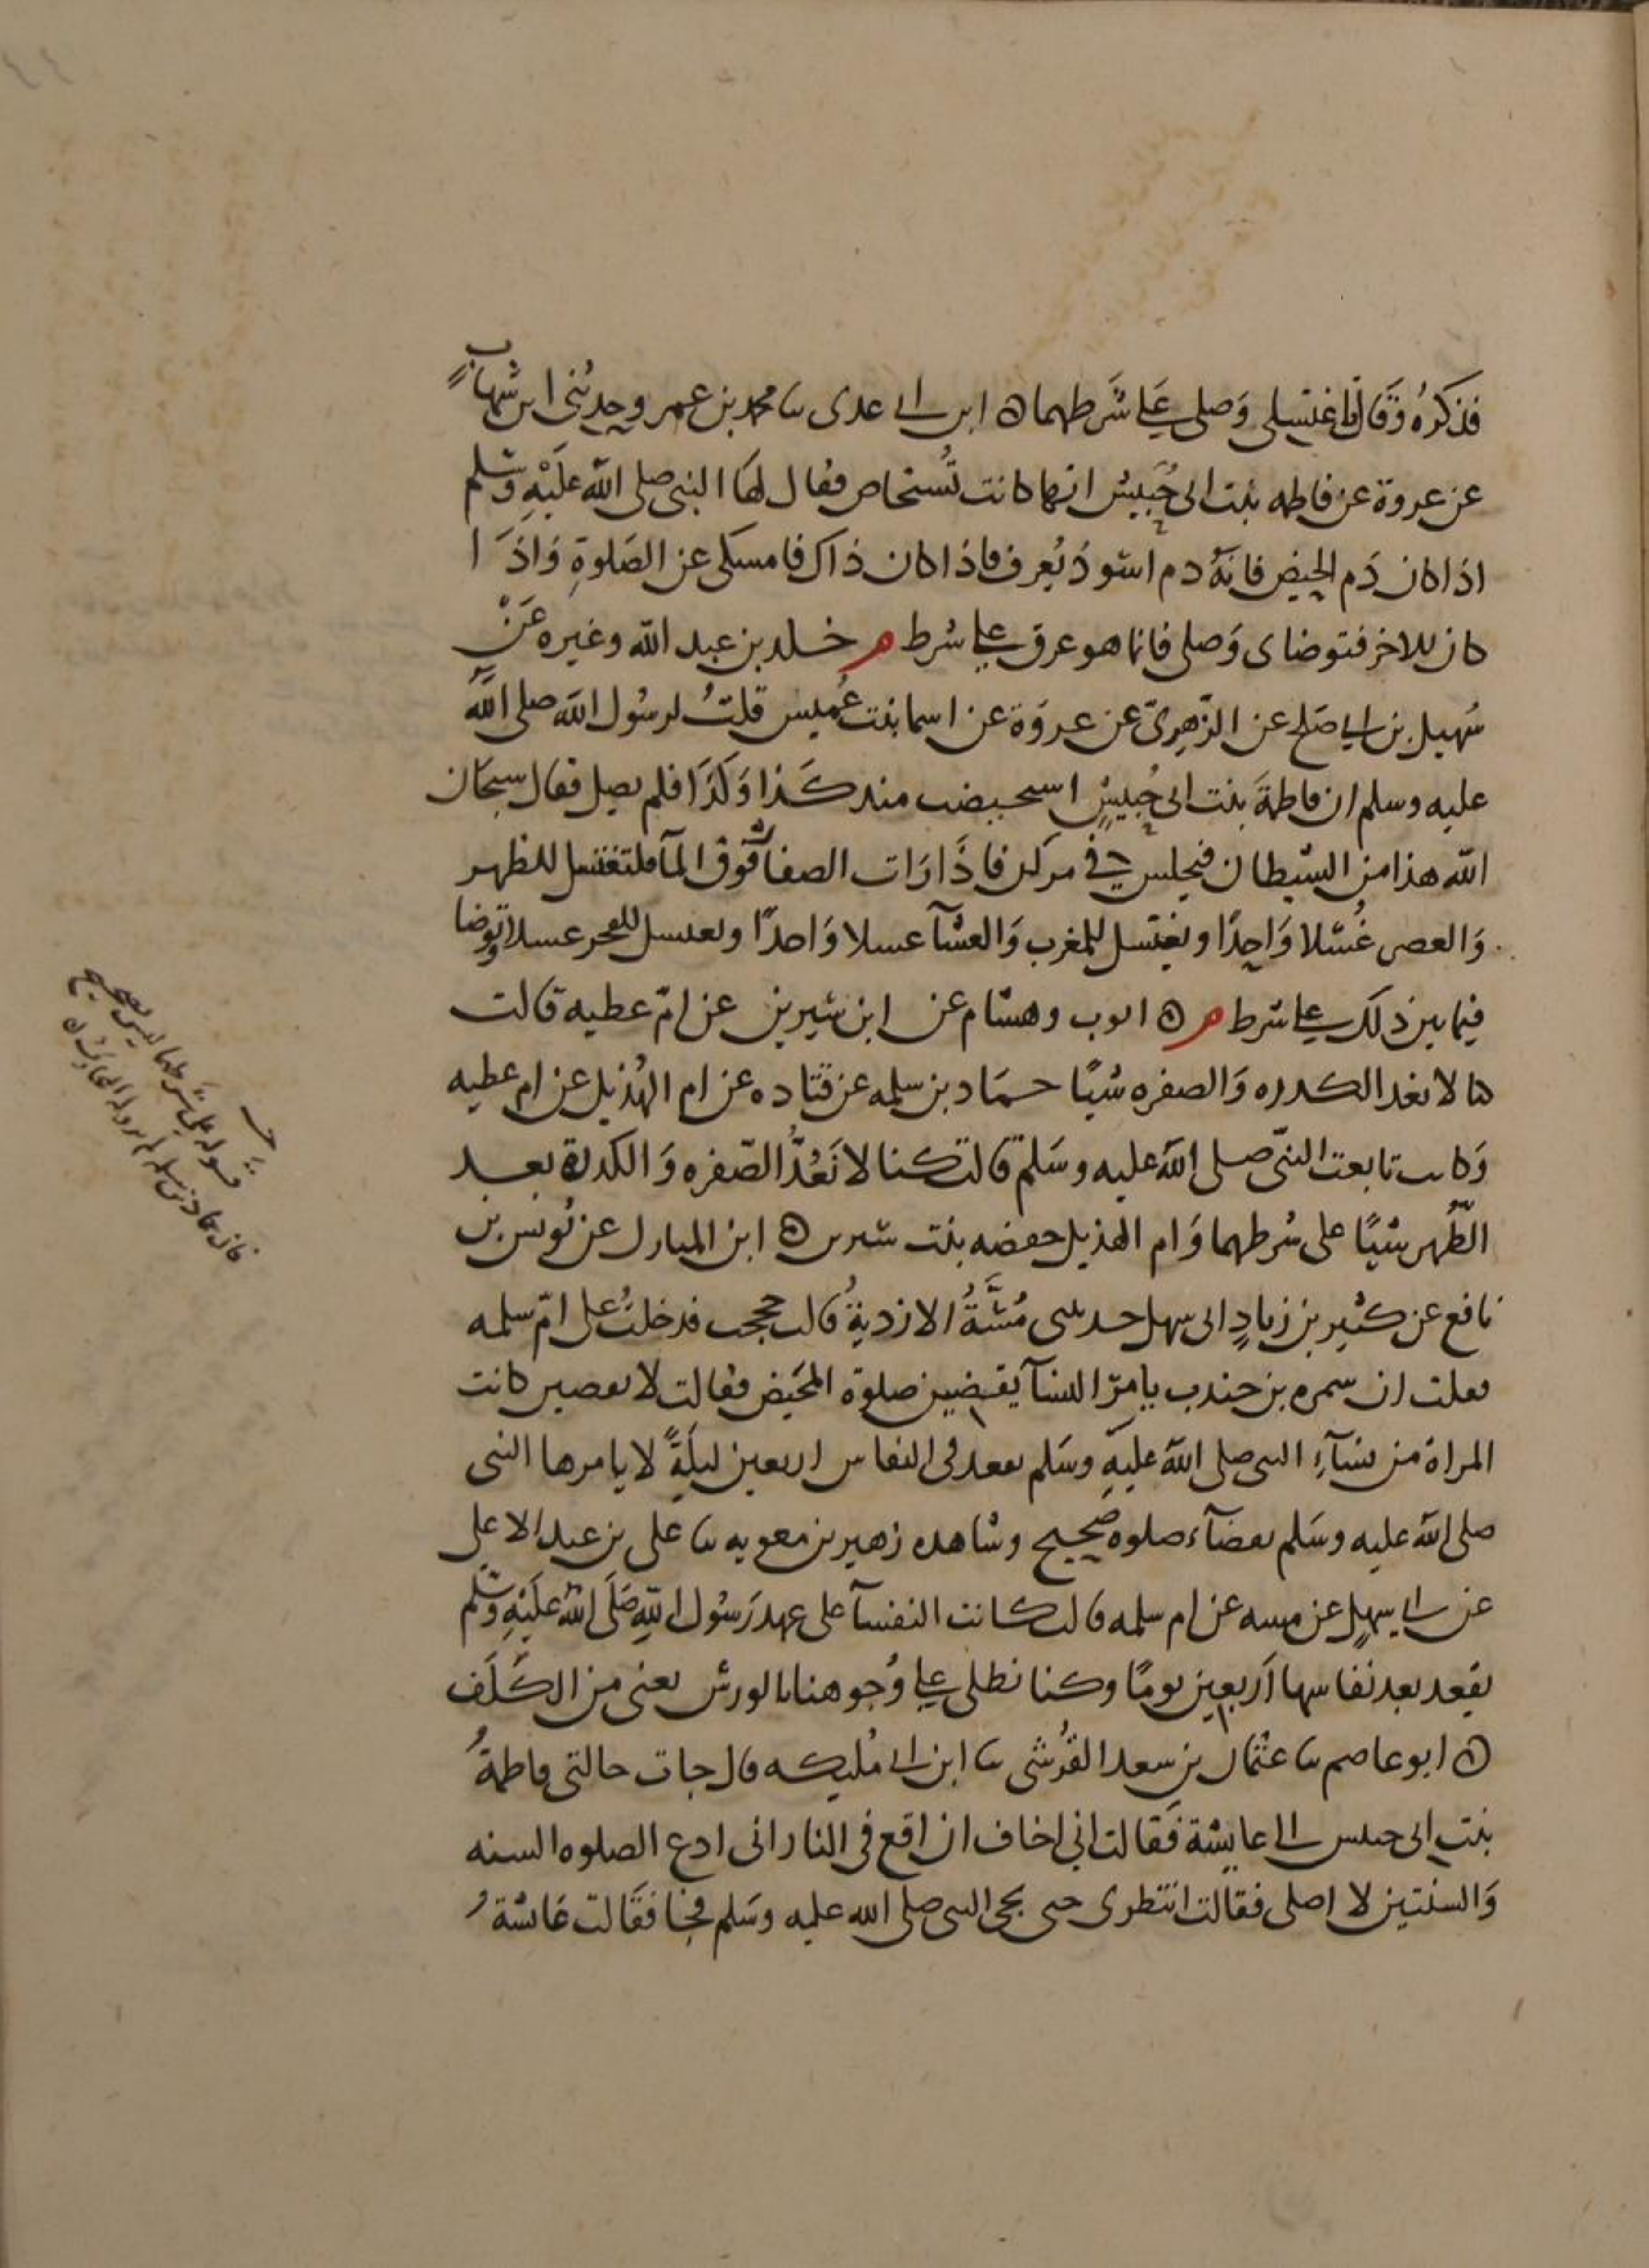 فذكره وقال فاغتسلي وصلي على شرطهما ه ابن ابي عدي ثنا محمد بن عمرو حدثني ابن شهاب
عن عروة عن فاطمه بنت ابي حبيش انها كانت تستحاض فقال لها النبي صلى الله عليه وسلم
اذا كان دم الحيض فانه دم اسود يعرف فاذا كان ذاك فامسكي عن الصلوة واذا
كان للاخر فتوضاي وصلي فانما هو عرق على شرط م خلد بن عبد الله وغيره عن
سهيل بن ابي صلح عن الزهري عن عروة عن اسما بنت عميس قلت لرسول الله صلى الله
عليه وسلم ان فاطمة بنت ابي حبيش استحيضت منذ كذا وكذا فلم تصل فقال سبحان
الله هذا من الشيطان فتجلس في مركن فاذا رات الصفا فوق المآ فلتغتسل للظهر
والعصر غسلا واحدا وتغتسل للمغرب والعشآ غسلا واحدا وتغتسل للفجر غسلا وتوضا
فيما بين ذلك على شرط م ه ايوب وهشام عن ابن سيرين عن ام عطيه قالت
كنا لا نعد الكدره والصفره شيا حماد بن سلمه عن قتاده عن ام الهذيل عن ام عطيه
وكانت تابعت النبي صلى الله عليه وسلم قالت كنا لا نعد الصفره والكدرة بعد
الطهر شيا على شرطهما وام الهذيل حفصه بنت سيرين ه ابن المبارك عن يونس بن
نافع عن كثير بن زياد ابي سهل حدثتني مسة الازدية قالت حججت فدخلت على ام سلمه
فقلت ان سمره بن جندب يامر النسآ يقضين صلوة المحيض فقالت لا يقضين كانت
المراة من نسآء النبي صلى الله عليه وسلم تقعد في النفاس اربعين ليلة لا يامرها النبي
صلى الله عليه وسلم بقضآء صلوه صحيح وشاهده زهير بن معويه ثنا علي بن عبد الاعلى
عن ابي سهل عن مسه عن ام سلمه قالت كانت النفسآ على عهد رسول الله صلى الله عليه وسلم
تقعد بعد نفاسها اربعين يوما وكنا نطلي على وجوهنا بالورس يعني من الكلف
ه ابو عاصم ثنا عثمان بن سعد القرشي ثنا ابن ابي مليكه قال جات خالتي فاطمة
بنت ابي حبيش الى عايشة فقالت اني اخاف ان اقع في النار اني ادع الصلوه السنه
والسنتين لا اصلي فقالت انتظري حتى يجي النبي صلى الله عليه وسلم فجا فقالت عائشة
قوله على شرطهما ليس بصحيح
فان حماد بن سلمه لم يرو له البخاري